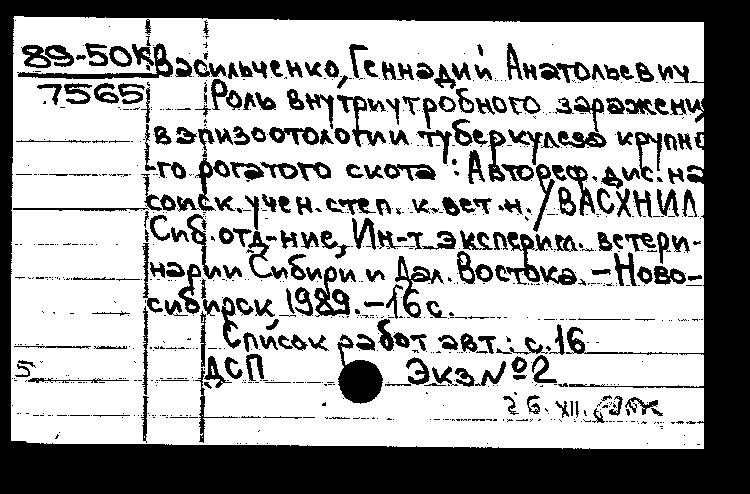 89-50к Васильченко, Геннадий Анатольевич
7565 Роль внутриутробного заражения
в эпизоотологии туберкулеза крупно
-го рогатого скота : Автореф. дис. на
соиск. учен. степ. к. вет. н. / ВАСХНИЛ
Сиб. отд-ние, Ин-т эксперим. ветери-
нарии Сибири и Дал. Востока. – Ново-
сибирск 1989. – 16 с.
Список работ авт.: с. 16
5 ДСП Экз № 2
26. XII.